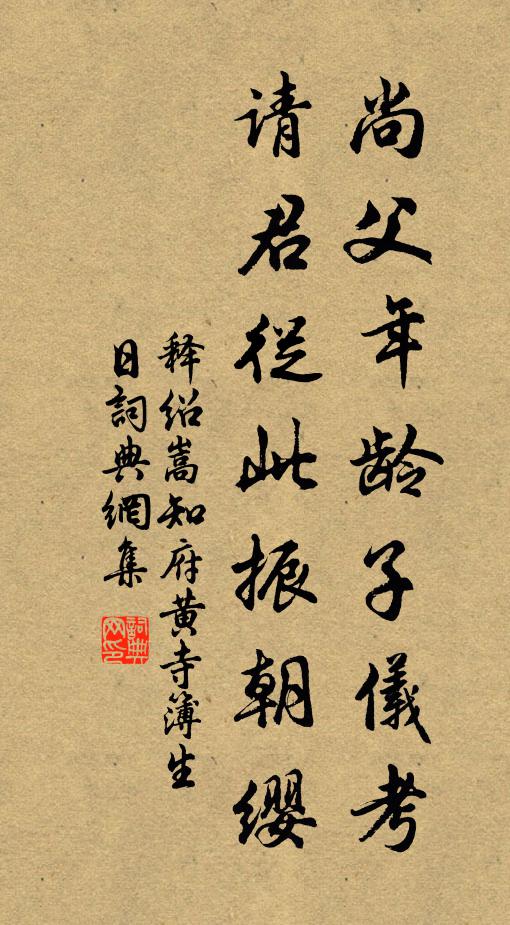 尚父年龄子儀考
请君從此振朝缨
释绍嵩知府黄寺簿生
日詞典網集
詞典网印